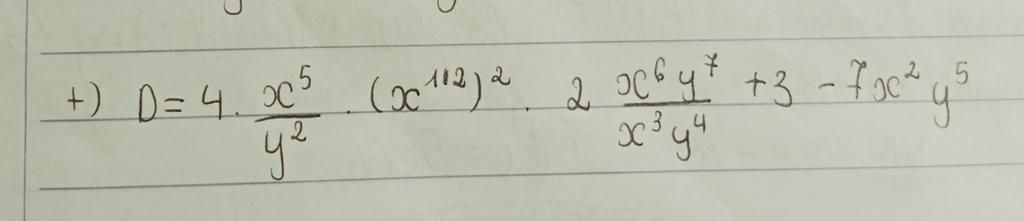 +) D = 4 . x⁵/y² . (x^112)² . 2 x⁶y⁷/x³y⁴ + 3 - 7x²y⁵